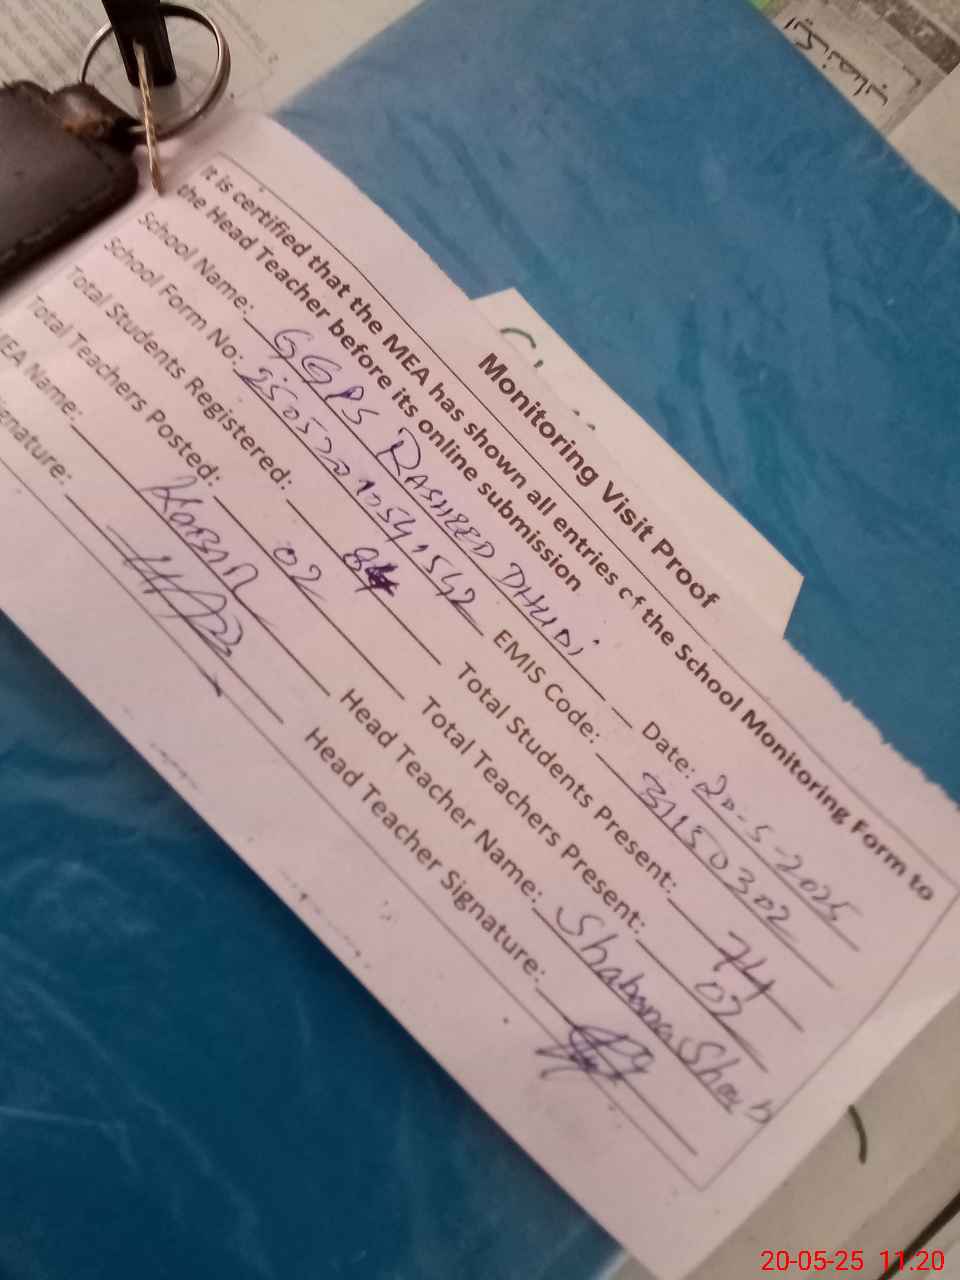 Monitoring Visit Proof
It is certified that the MEA has shown all entries of the School Monitoring Form to
the Head Teacher before its online submission
School Name: GGPS RASHEED DHUDi Date: 20-5-2025
School Form No: EMIS Code: 31150302
Total Students Registered: 84 Total Students Present: 74
Total Teachers Posted: 02 Total Teachers Present: 02
MEA Name: Head Teacher Name: Shabana Shoaib
gnature: Head Teacher Signature:
20-05-25 11:20